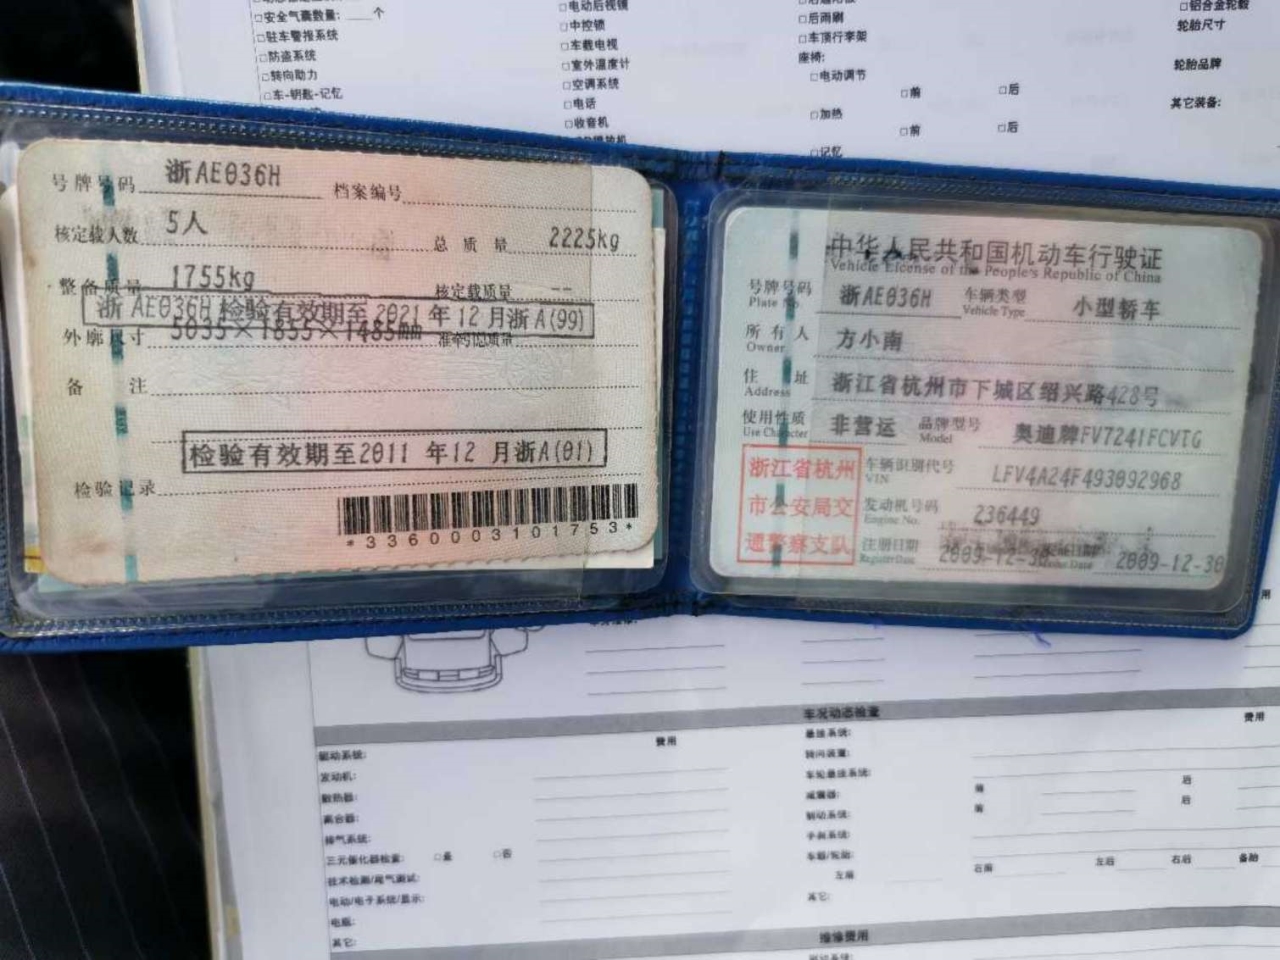 □安全气囊数量:____个
□驻车警报系统
□防盗系统
□转向助力
□车-钥匙-记忆
□电动后视镜
□中控锁
□车载电视
□室外温度计
□空调系统
□电话
□收音机
□后雨刷
□车顶行李架
座椅:
□电动调节
□前 □后
□加热
□前 □后
□记忆
□铝合金轮毂
轮胎尺寸
轮胎品牌
其它装备:
号牌号码 浙AE036H 档案编号
核定载人数 5人 总质量 2225kg
整备质量 1755kg 核定载质量 --
浙AE036H 检验有效期至2021年12月浙A(99)
外廓尺寸 5035×1855×1485mm 准牵引总质量
备注
检验有效期至2011 年12 月浙A(01)
检验记录
*3360003101753*
中华人民共和国机动车行驶证
Vehicle License of the People's Republic of China
号牌号码 浙AE036H 车辆类型 小型轿车
Plate No. Vehicle Type
所有人 方小南
Owner
住址 浙江省杭州市下城区绍兴路428号
Address
使用性质 非营运 品牌型号 奥迪牌FV7241FCVTG
Use Character Model
浙江省杭州
市公安局交
通警察支队
车辆识别代号 LFV4A24F493092968
VIN
发动机号码 236449
Engine No.
注册日期 2009-12-30 发证日期 2009-12-30
Register Date Issue Date
车况动态检查
费用 费用
驱动系统:
发动机:
散热器:
离合器:
排气系统:
三元催化器检查: □是 □否
技术检测/尾气测试:
电动/电子系统/显示:
电瓶:
其它:
悬挂系统:
转向装置:
车轮悬挂系统:
减震器: 前 后
制动系统: 前 后
手刹系统:
车毂/轮胎:
左前 右前 左后 右后 备胎
其它:
维修费用